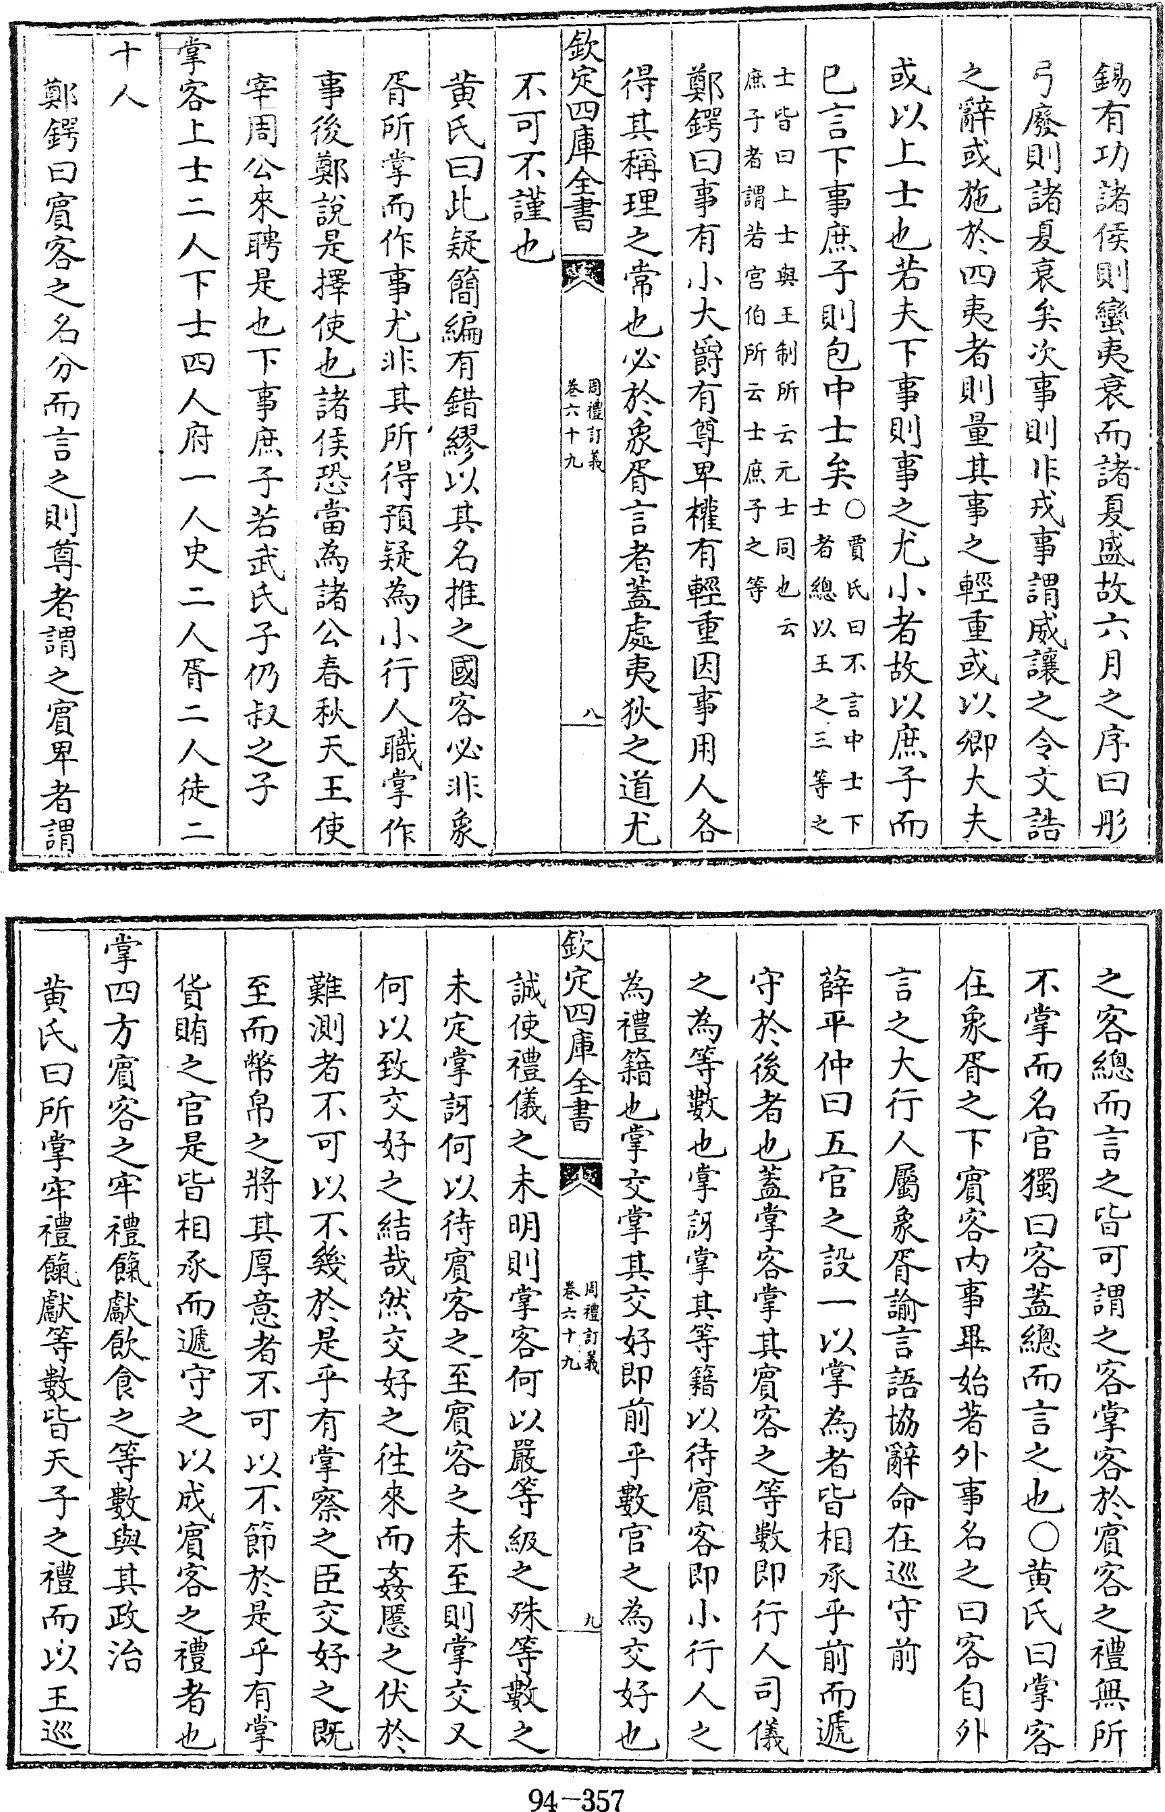 錫有功諸侯則蠻夷衰而諸夏盛故六月之序曰彤
弓廢則諸夏衰矣次事則非戎事謂威讓之令文誥
之辭或施於四夷者則量其事之輕重或以卿大夫
或以上士也若夫下事則事之尤小者故以庶子而
已言下事庶子則包中士矣○賈氏曰不言中士下
士者總以王之三等之
士皆曰上士與王制所云元士同也云
庶子者謂若宫伯所云士庶子之等
鄭鍔曰事有小大爵有尊卑權有輕重因事用人各
得其稱理之常也必於象胥言者蓋處夷狄之道尤
欽定四庫全書
周禮訂義
卷六十九
八
不可不謹也
黄氏曰此疑簡編有錯繆以其名推之國客必非象
胥所掌而作事尤非其所得預疑為小行人職掌作
事後鄭說是擇使也諸侯恐當為諸公春秋天王使
宰周公來聘是也下事庶子若武氏子仍叔之子
掌客上士二人下士四人府一人史二人胥二人徒二
十人
鄭鍔曰賓客之名分而言之則尊者謂之賓卑者謂
之客總而言之皆可謂之客掌客於賓客之禮無所
不掌而名官獨曰客蓋總而言之也○黄氏曰掌客
在象胥之下賓客内事畢始著外事名之曰客自外
言之大行人屬象胥諭言語協辭命在巡守前
薛平仲曰五官之設一以掌為者皆相承乎前而遞
守於後者也蓋掌客掌其賓客之等數即行人司儀
之為等數也掌訝掌其等籍以待賓客即小行人之
為禮籍也掌交掌其交好即前乎數官之為交好也
欽定四庫全書
周禮訂義
卷六十九
九
誠使禮儀之未明則掌客何以嚴等級之殊等數之
未定掌訝何以待賓客之至賓客之未至則掌交又
何以致交好之結哉然交好之往來而姦慝之伏於
難測者不可以不幾於是乎有掌察之臣交好之既
至而幣帛之將其厚意者不可以不節於是乎有掌
貨賄之官是皆相承而遞守之以成賓客之禮者也
掌四方賓客之牢禮餼獻飲食之等數與其政治
黄氏曰所掌牢禮餼獻等數皆天子之禮而以王巡
94-357